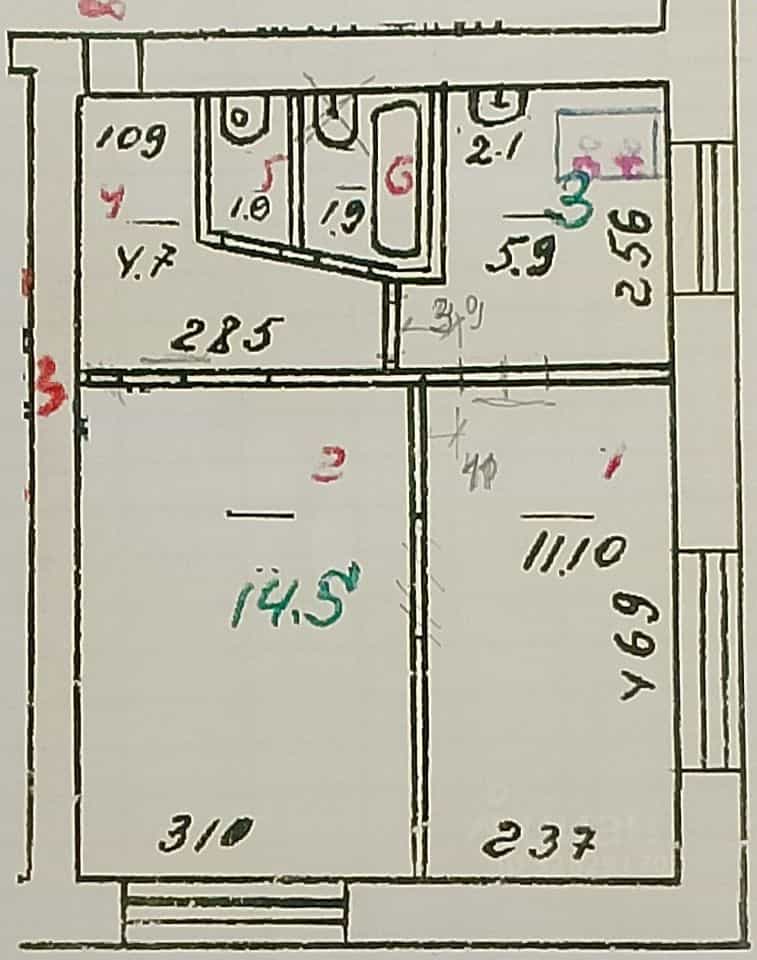 109
4
4.7
285
5
1.0
1.9
6
2.1
3
5.9
256
3
2
14.5
310
40
1
11.10
469
237